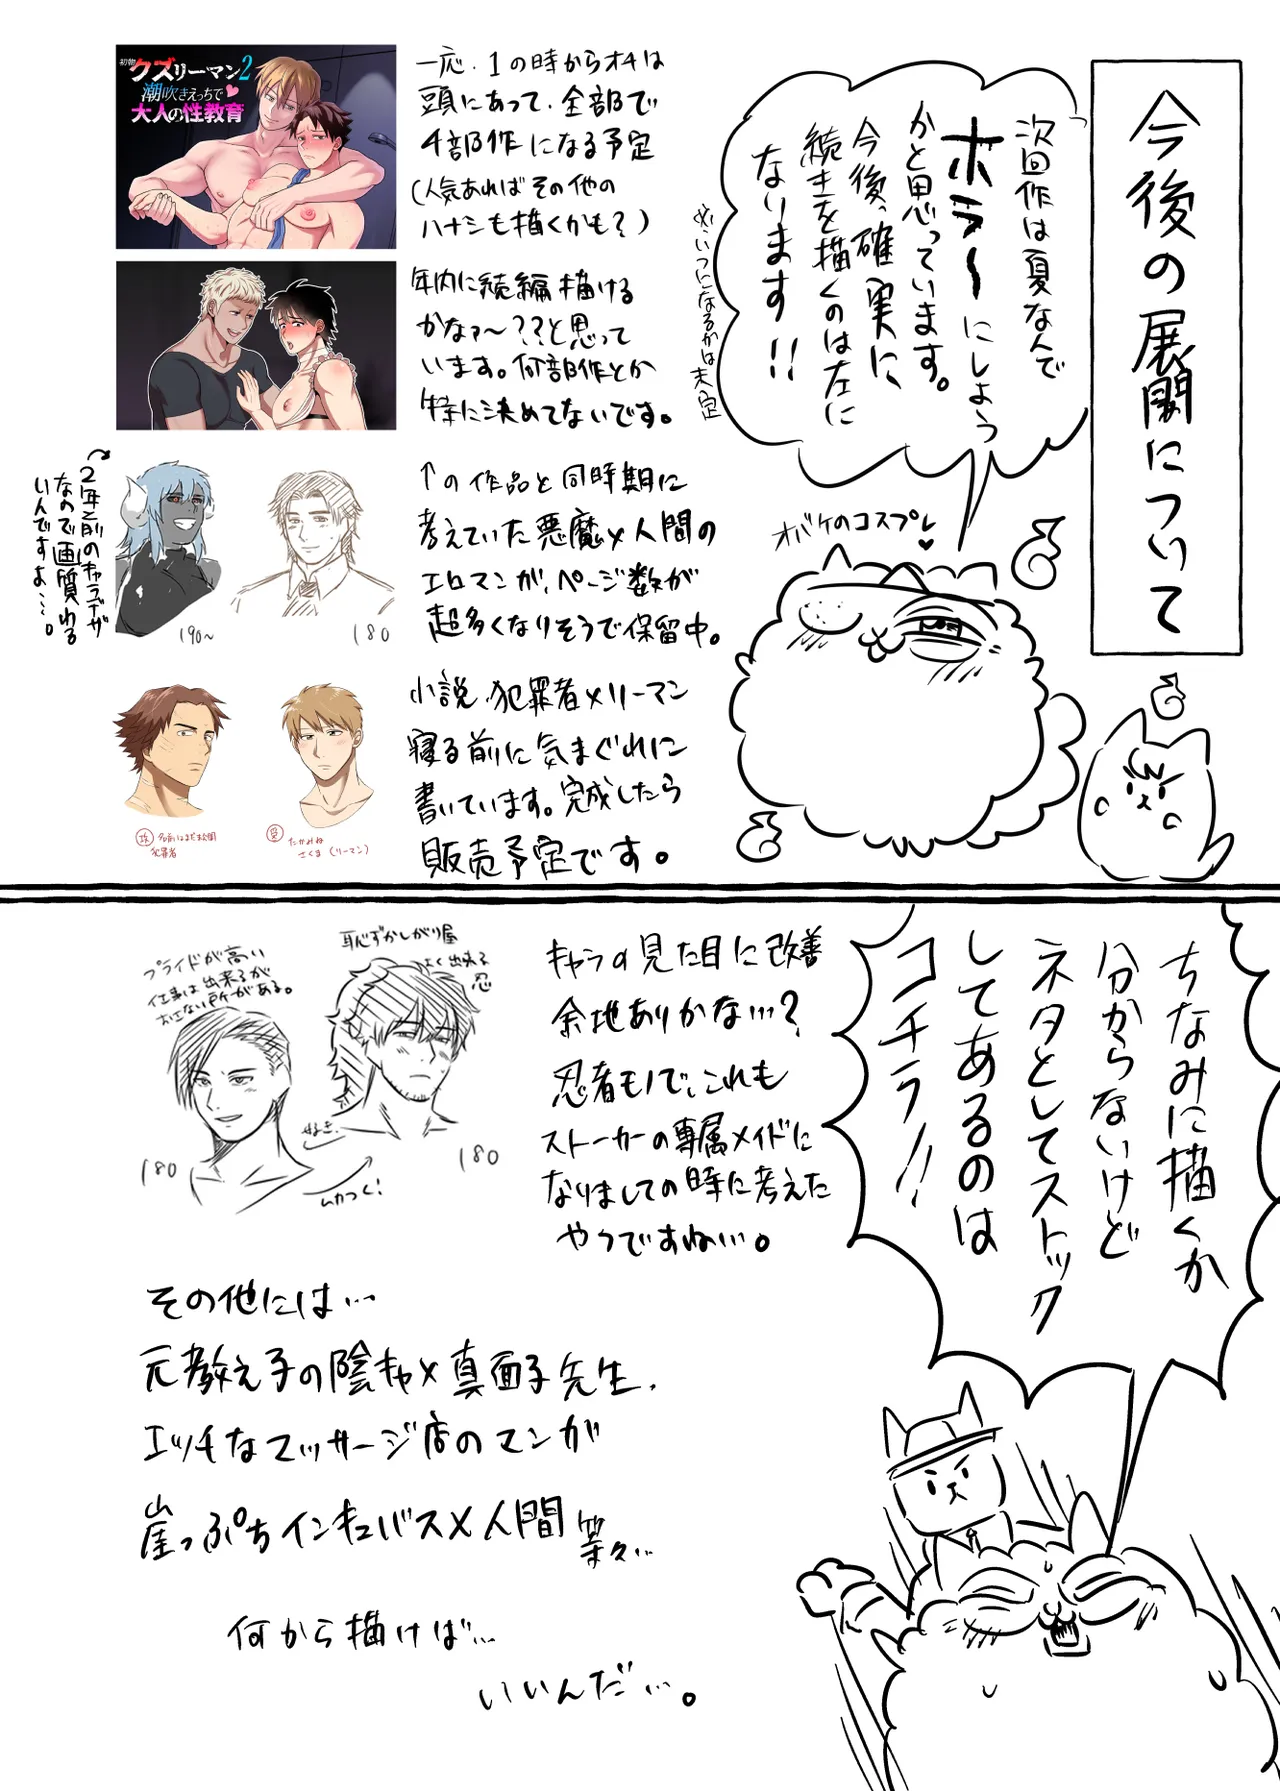 今後の展開について
次回作は夏なんで
ホラーにしよう
かと思っています。
今後、確実に、
続きを描くのは左に
なります!!
※いつになるかは未定
オバケのコスプレ♥
初物
クズリーマン2
潮吹きえっちで♥
大人の性教育
一応、1の時からオチは
頭にあって、全部で
4部作になる予定
(人気あればその他の
ハナシも描くかも?)
年内に続編描ける
かなァ〜??と思って
います。何部作とか
特に決めてないです。
2年前のキャラデザ
なので画質わる
いんですよ…。
190〜
180
↑の作品と同時期に
考えていた悪魔×人間の
エロマンガ、ページ数が
超多くなりそうで保留中。
攻 名前はまだ未開
犯罪者
受 たかみね
さくま(リーマン)
小説、犯罪者×リーマン
寝る前に気まぐれに
書いています。完成したら
販売予定です。
ちなみに描くか
分からないけど
ネタとしてストック
してあるのは
コチラ!!
プライドが高い
仕事は出来るが
大人気ない所がある。
180
恥ずかしがり屋
よく出来る
忍
好き
ムカつく!
180
キャラの見た目に改善
余地ありかな…?
忍者モノで、これも
ストーカーの専属メイドに
なりましての時に考えた
やつですねぃ…。
その他には…
元教え子の陰キャ×真面目先生、
エッチなマッサージ店のマンガ
崖っぷちインキュバス×人間 等々…
何から描けば…
いいんだ…。